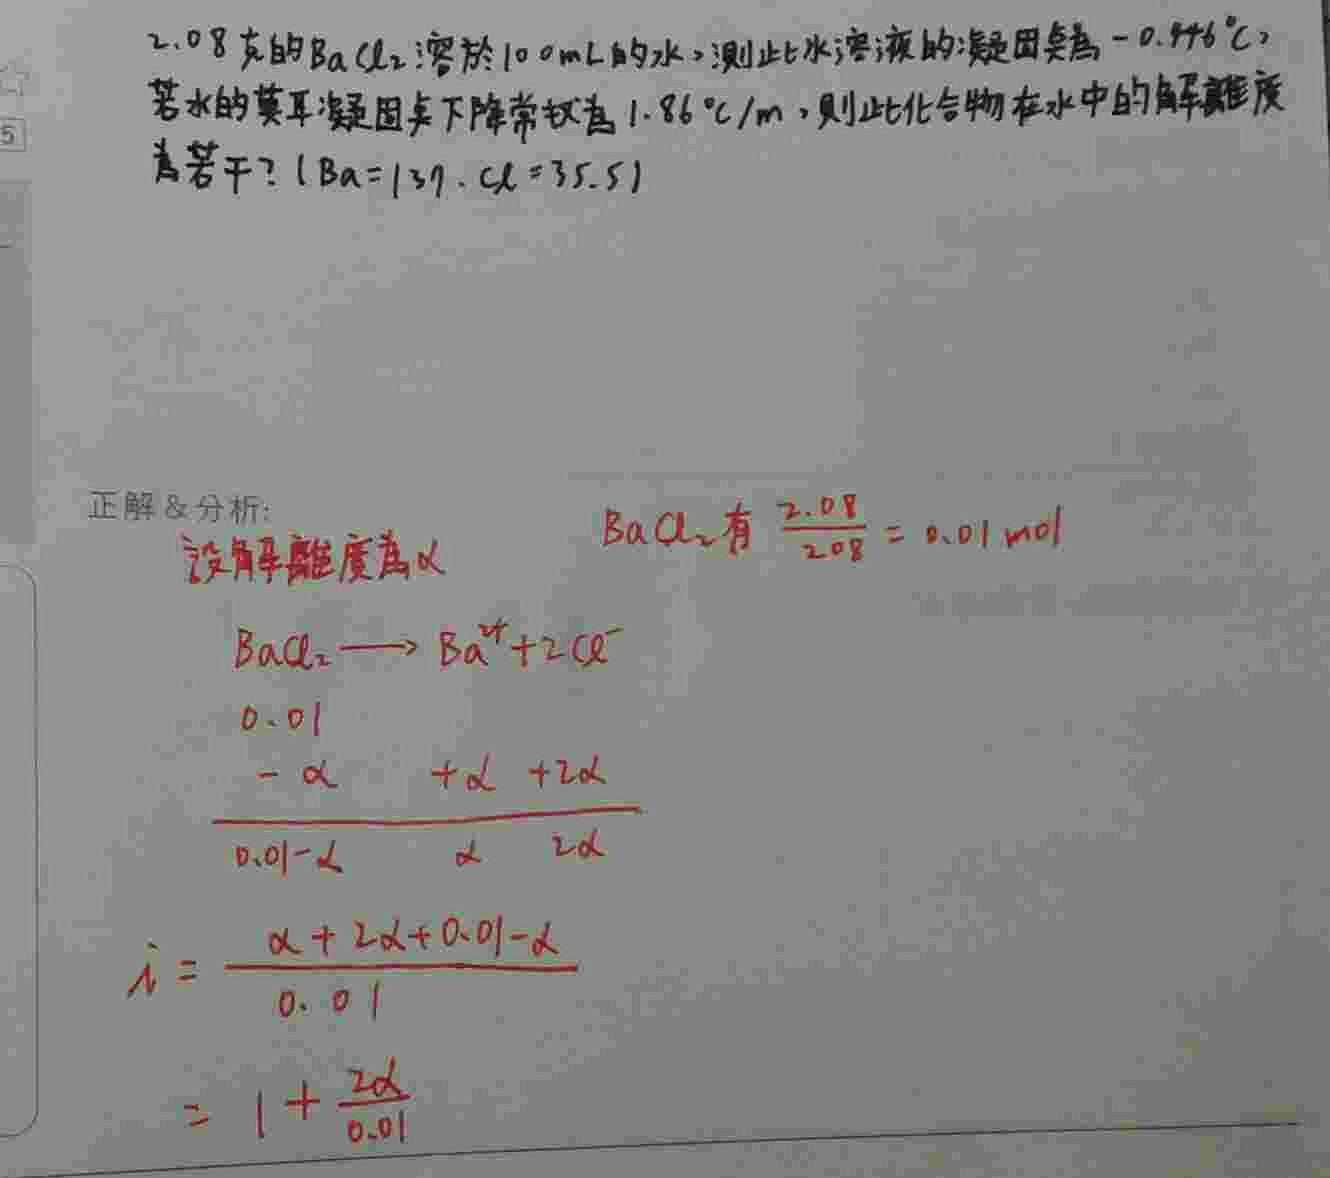 5
2.08克的BaCl₂溶於100mL的水,測此水溶液的凝固點為-0.446°C,
若水的莫耳凝固點下降常數為1.86°C/m,則此化合物在水中的解離度
為若干?(Ba=137.Cl=35.5)
正解&分析:
BaCl₂有 2.08/208 = 0.01 mol
設解離度為α
BaCl₂ ⟶ Ba²⁺+2Cl⁻
0.01
-α +α +2α
0.01-α α 2α
i = (α+2α+0.01-α)/0.01
= 1+2α/0.01